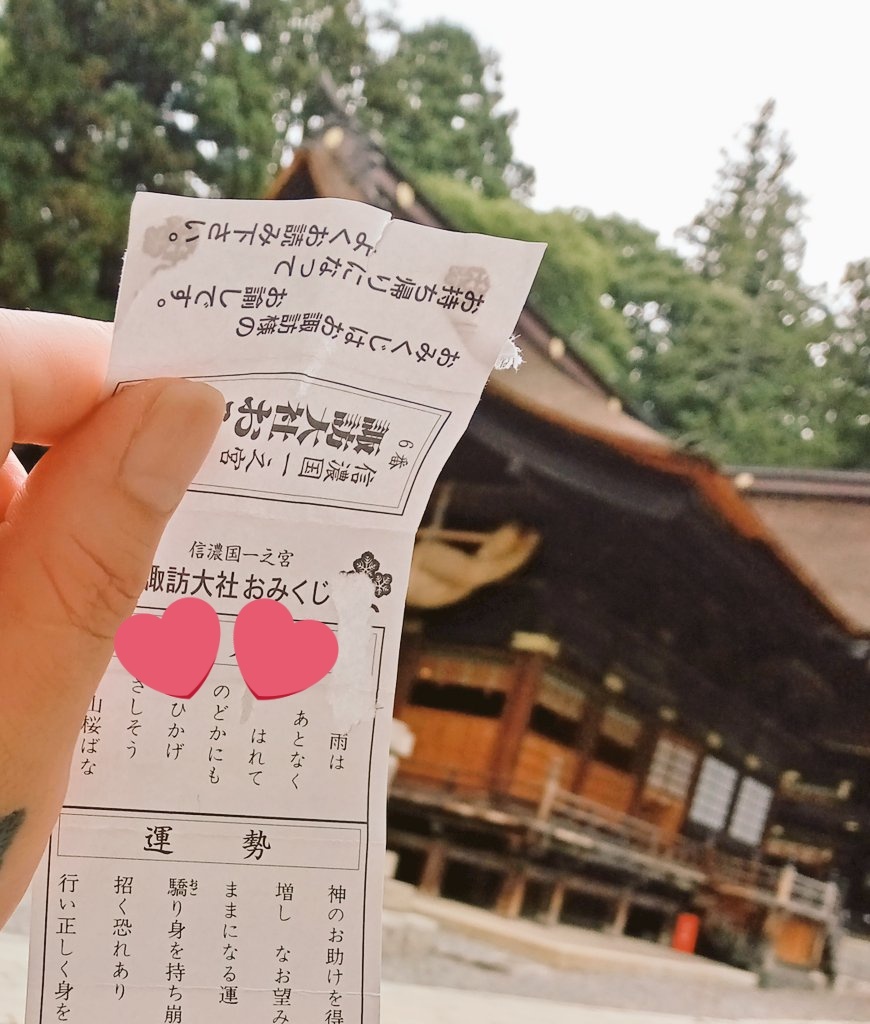 おみくじはお諏訪様の
お諭しです。
お持ち帰りになって
よくお読み下さい。
6番
信濃国一之宮
諏訪大社お
信濃国一之宮
諏訪大社おみくじ
雨は
あとなく
はれて
のどかにも
ひかげ
さしそう
山桜ばな
運勢
神のお助けを得
増し なお望み
ままになる運
驕り身を持ち崩
おご
招く恐れあり
行い正しく身を